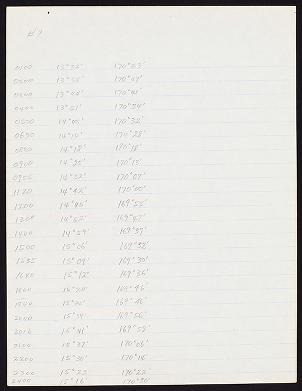 #7
0100 13°32' 170°53'
0200 170°47'
0300 170°41'
0400 13°51' 170°34'
0500 14°02' 170°32'
0630 14°10' 170°28'
0800 14°18' 170°18'
0900 14°25' 170°13'
0955 14°32' 170°07'
1120 14°42' 170°00'
1200 14°45' 169°55'
1300 14°52' 169°47'
1400 14°59' 169°39'
1500 15°06' 169°32'
1535 15°09' 169°30'
1640 15°12' 169°36'
1800 169°46'
169°46'
2000 169°56'
2016 15°41' 169°55'
2100 15°37' 170°06'
2200 15°30' 170°14'
2300 15°23' 170°22'
2400 15°16' 170°30'